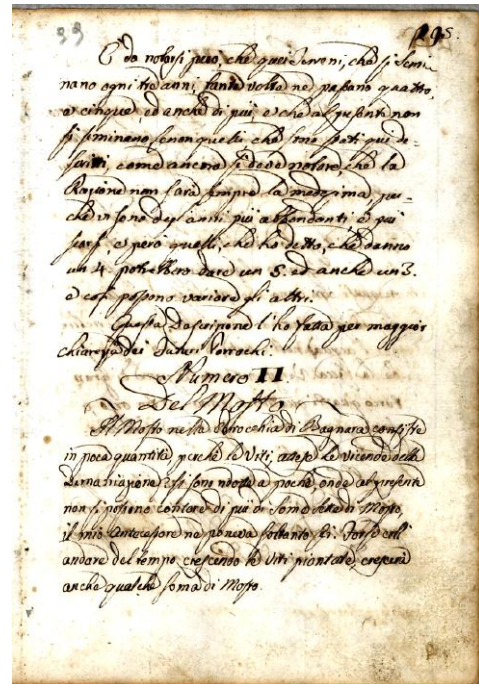 33
195.
È da notarsi però, che quei Terreni, che si Semi-
nano ogni tre anni, tante volte ne passano quattro,
e cinque ed anche di più, e che al presente non
si siminano senon quelli che sono stati qui de-
scritti, come ancora si deve notare, che la
Raggione non sarà sempre la medesima, per-
chè vi sono degl'anni più abbondanti e più
scarsi, e però quelli, che ho detto, che danno
un 4. potrebbero dare un 5. ed anche un 3.
e così possono variare gli altri.
Questa Descrizione l'ho fatta per maggior
chiarezza dei futuri Parrochi.
Numero 11.
Del Mosto
Il Mosto nella Parrocchia di Bagnara consiste
in poca quantità perchè le Viti, attese le vicende della
si sono ridotte a poche, onde al presente
non si possono contare di più di Some sette di Mosto,
il mio Antecessore ne poneva soltanto sei. Forse coll'
andare del tempo, crescendo le Viti piantate, crescerà
anche qualche soma di Mosto.